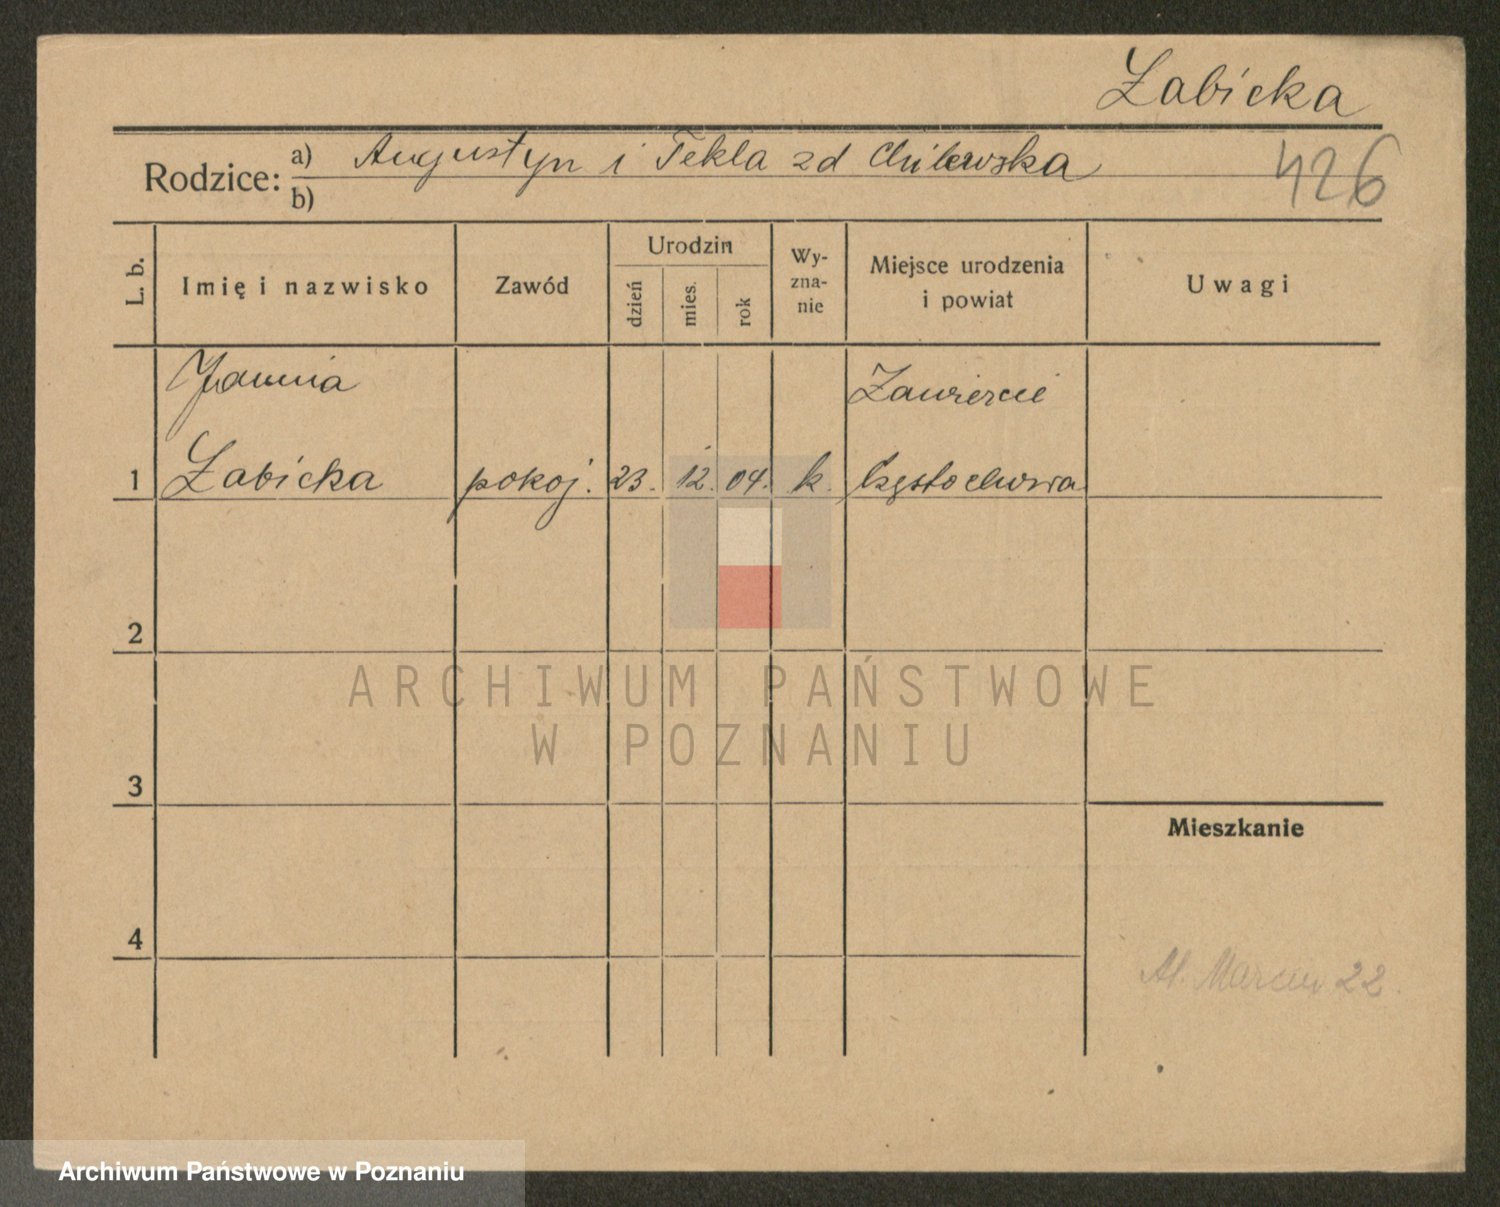 Żabicka
Rodzice: a) Augustyn i Tekla zd
b)
426
L. b.
Imię i nazwisko
Zawód
Urodzin
dzień
mies.
rok
Wy-
zna-
nie
Miejsce urodzenia
i powiat
Uwagi
Janina
Zawiercie
1 Żabicka pokoj. 23. 12. 04. k. Częstochowa
2
ARCHIWUM PAŃSTWOWE
W POZNANIU
3
Mieszkanie
4
Marcin 22.
Archiwum Państwowe w Poznaniu